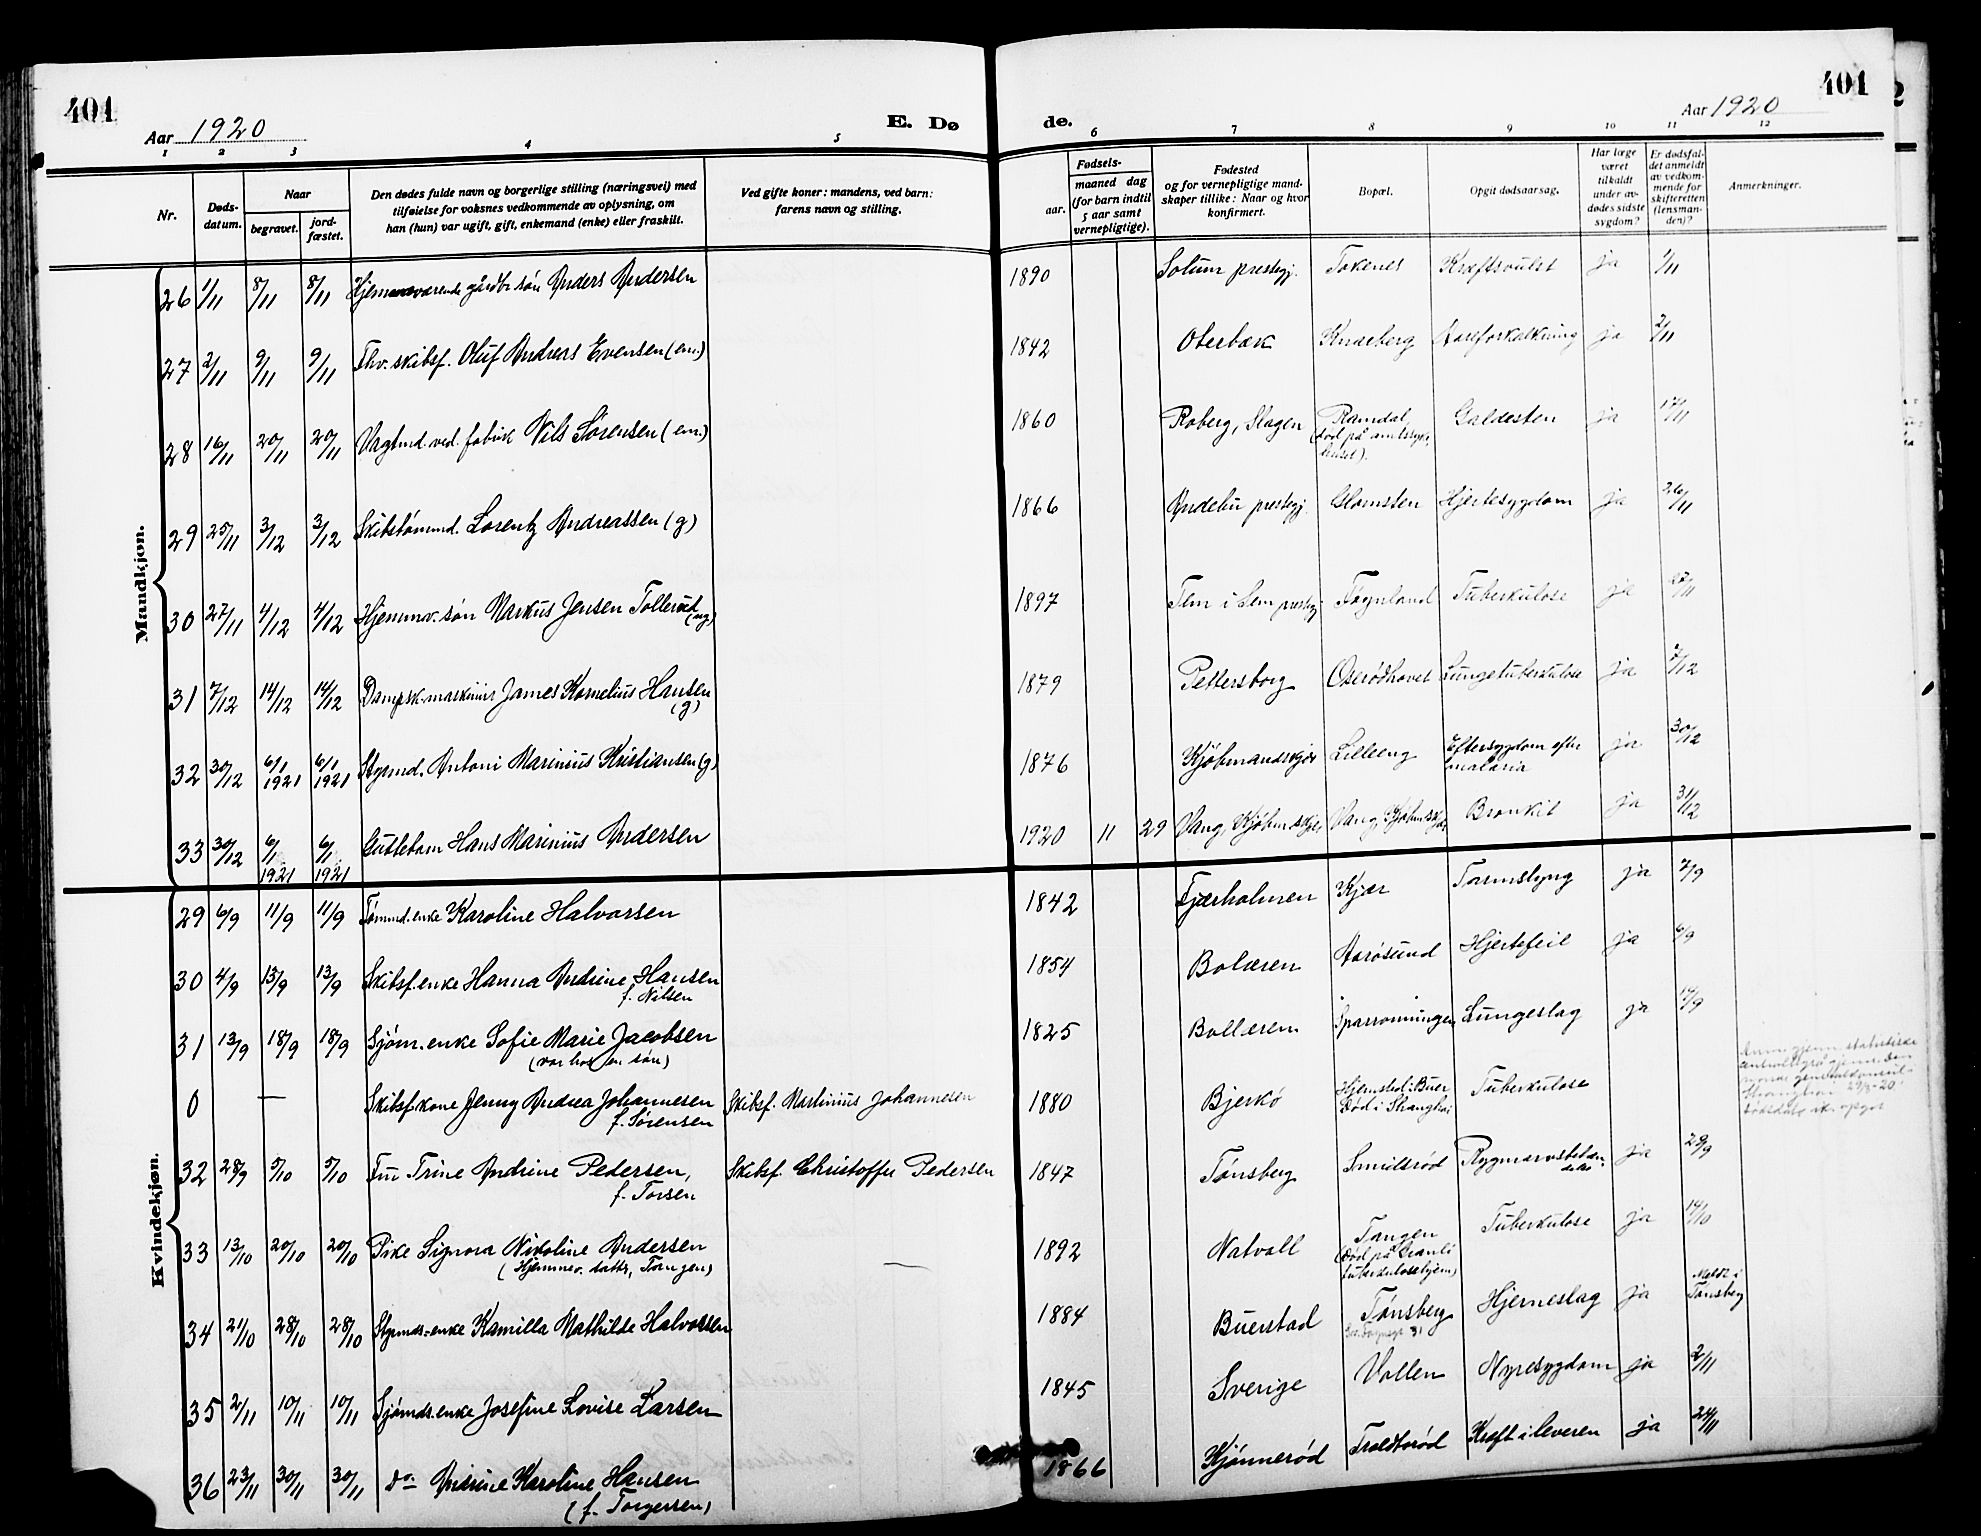 401
Aar 1920
E. Dø
de.
401
Aar 1920
1 2 3 4 5 6 7 8 9 10 11 12
Nr.
Døds-
datum.
Naar
begravet.
jord-
fæstet.
Den dødes fulde navn og borgerlige stilling (næringsvei) med
tilføielse for voksnes vedkommende av oplysning, om
han (hun) var ugift, gift, enkemand (enke) eller fraskilt.
Ved gifte koner: mandens, ved barn:
farens navn og stilling.
Fødsels-
aar.
maaned dag
(for barn indtil
5 aar samt
vernepligtige).
Fødested
og for vernepligtige mand-
skaper tillike: Naar og hvor
konfirmert.
Bopæl.
Opgit dødsaarsag.
Har læge
været
tilkaldt
under av-
dødes sidste
sygdom?
Er dødsfal-
det anmeldt
av vedkom-
mende for
skifteretten
(lensman-
den)?
Anmerkninger.
Mandkjøn.
26 1/11 8/11 8/11 Hjemmeværende gårdbr. søn Anders Andersen 1890 Solum prestegj. Tokenes Kræftsvulst ja 1/11
27 2/11 9/11 9/11 Fhv. skibsf. Oluf Andreas Evensen (em.) 1842 Oterbæk Knæeberg Aareforkalkning ja 2/11
28 16/11 20/11 20/11 Vagtmd. ved. fabrik Nils Sørensen (em.) 1860 Roberg, Slagen Ramdal, Galdesten ja 17/11
(død på amtssyge-
huset).
29 25/11 3/12 3/12 Skibstømmd. Lorentz Andreassen (g) 1866 Andebu prestegj. Glomsten Hjertesygdom ja 26/11
30 27/11 4/12 4/12 Hjemmv. søn Markus Jensen Tollerud 1897 Fem i Sem prestegj. Føynland Tuberkulose ja 27/11
(ug)
31 7/12 14/12 14/12 Dampsk. maskinist James Kornelius Hansen 1879 Pettersborg Oserødhovet Lungetuberkulose ja 7/12
(g)
32 30/12 6/1 1921 6/1 1921 Styrmd. Antoni Marinius Kristiansen (g) 1876 Kjøbmandskjær Lilleeng Eftersygdom efter ja 30/12
malaria
33 30/12 6/1 1921 6/1 1921 Guttebarn Hans Marinius Andersen 1920 11 29 Vang, Kjøbmskjær Vang, Kjøbmskjær Bronkit ja 31/12
Kvindekjøn.
29 6/9 11/9 11/9 Tømmd. enke Karoline Halvorsen 1842 Fjærholmen Kjær Tarmslyng ja 7/9
30 4/9 13/9 13/9 Skibsf. enke Hanna Andrine Hansen 1854 Bolæren Aarøsund Hjertefeil ja 6/9
f. Nilsen
31 13/9 18/9 18/9 Sjøm. enke Sofie Marie Jacobsen 1825 Bollæren Sparrommingen Lungeslag ja 14/9
(var hos en søn)
0 — Skibsf. kone Jenny Andrea Johannesen Skibsf. Martinius Johannesen 1880 Bjerkø Hjemsted: Buer Tuberkulose
f. Sørensen
Død i Shanghai
32 28/9 5/10 5/10 Fru Trine Andrine Pedersen, Skibsf. Christoffer Pedersen 1847 Tønsberg Smidsrød ja 28/9
f. Torsen
33 13/10 20/10 20/10 Pike Signora Nikoline Andersen — 1892 Natvall Tangen Tuberkulose ja 14/10
(Hjemmev. datter, Tangen)
(død på Granli
tuberkulosehjem)
34 21/10 28/10 28/10 Styrmds. enke Kamilla Mathilde Halvorsen 1884 Buerstad Tønsberg Hjerneslag ja Meldt i
Tønsberg
35 2/11 10/11 10/11 Sjømds. enke Josefine Lovise Larsen 1845 Sverige Vollen Nyresygdom ja 2/11
36 23/11 30/11 30/11 do Andrine Karoline Hansen 1866 Kjønnerød Troldborød Kræft i leveren ja 24/11
(f. Torgersen)